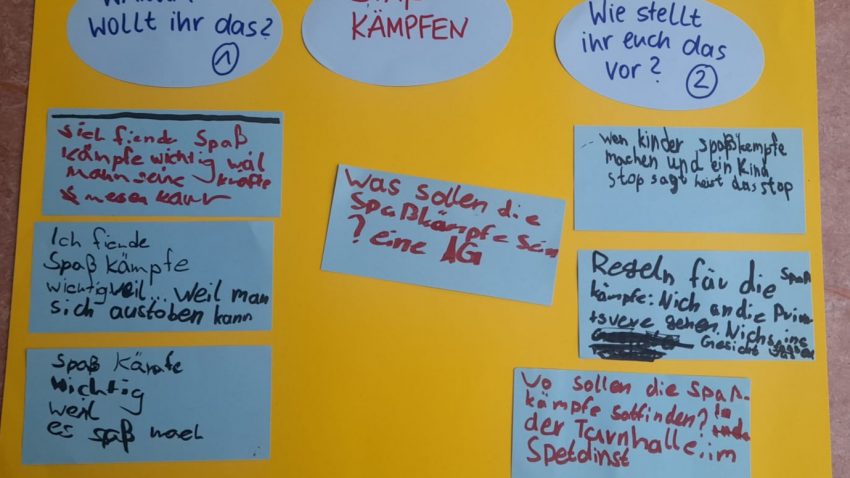 wollt ihr das?
1
KÄMPFEN
Wie stellt
ihr euch das
vor? 2
sich fiende Spaß
kämpfe wichtig wail
mahn seine kräfte
mesen kann
Ich fiende
Spaß kämpfe
wichtig weil... weil man
sich austoben kann
Spaß Kämfe
wichtig
weil
es spaß mach
was sollen die
Spaßkämpfe sein
? eine AG
wen kinder spaßkempfe
machen und ein Kind
stop sagt heist das stop
Regeln für die Spaß
kämpfe: Nich an die Priw
tsvere gehen. Nichs ins
Gesicht
Wo sollen die Spaß-
kämpfe sotfinden? In
der Turnhalle. im
Spetdinst